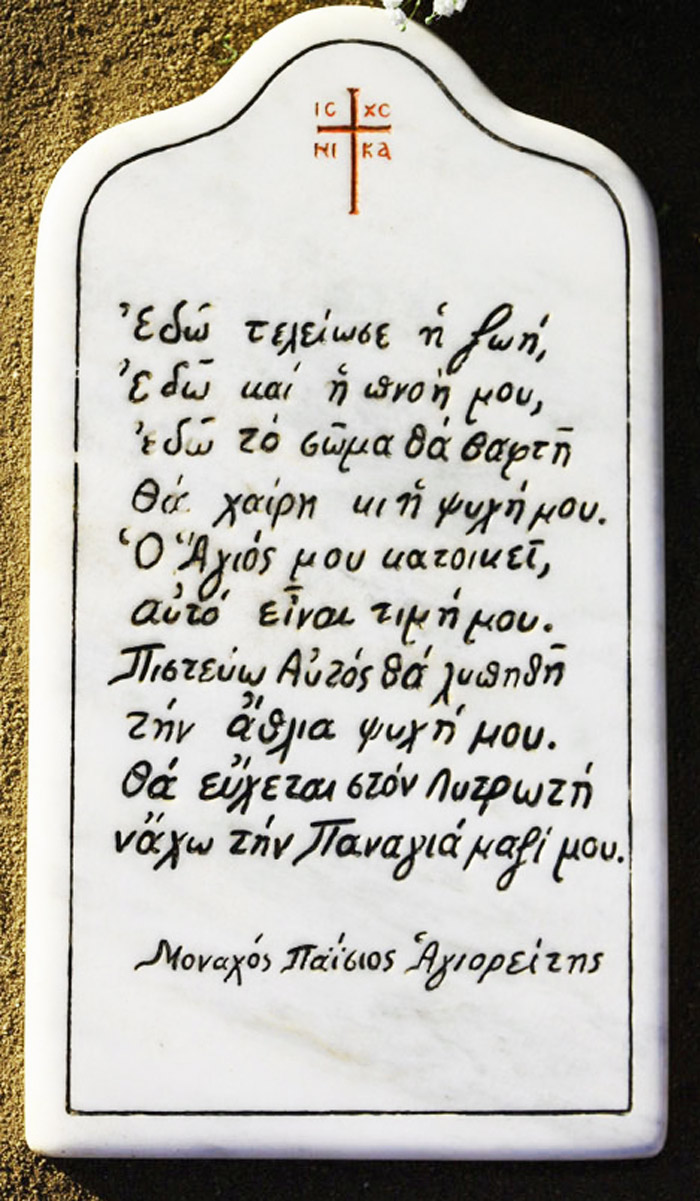 IC XC
NI KA
Ἐδῶ τελείωσε ἡ ζωή,
Ἐδῶ καί ἡ πνοή μου,
ἐδῶ τό σῶμα θά θαφτῆ
Θά χαίρη κι ἡ ψυχή μου.
Ὁ Ἅγιός μου κατοικεῖ,
αὐτό εἶναι τιμή μου.
Πιστεύω Αὐτός θά λυπηθῆ
τήν ἄθλια ψυχή μου.
Θά εὔχεται στόν Λυτρωτή
νἄχω τήν Παναγιά μαζί μου.
Μοναχός Παΐσιος Ἁγιορείτης